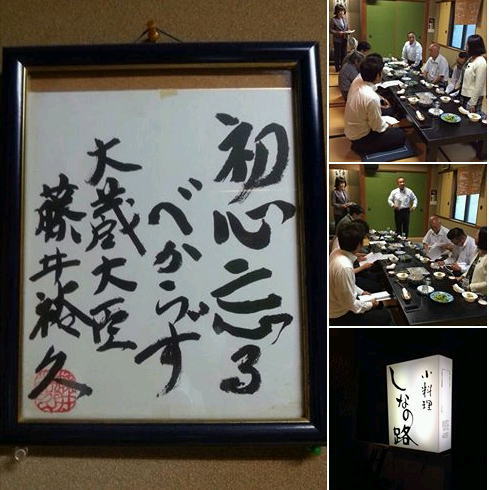 初心忘る
べからず
大蔵大臣
藤井裕久
小料理
しなの路